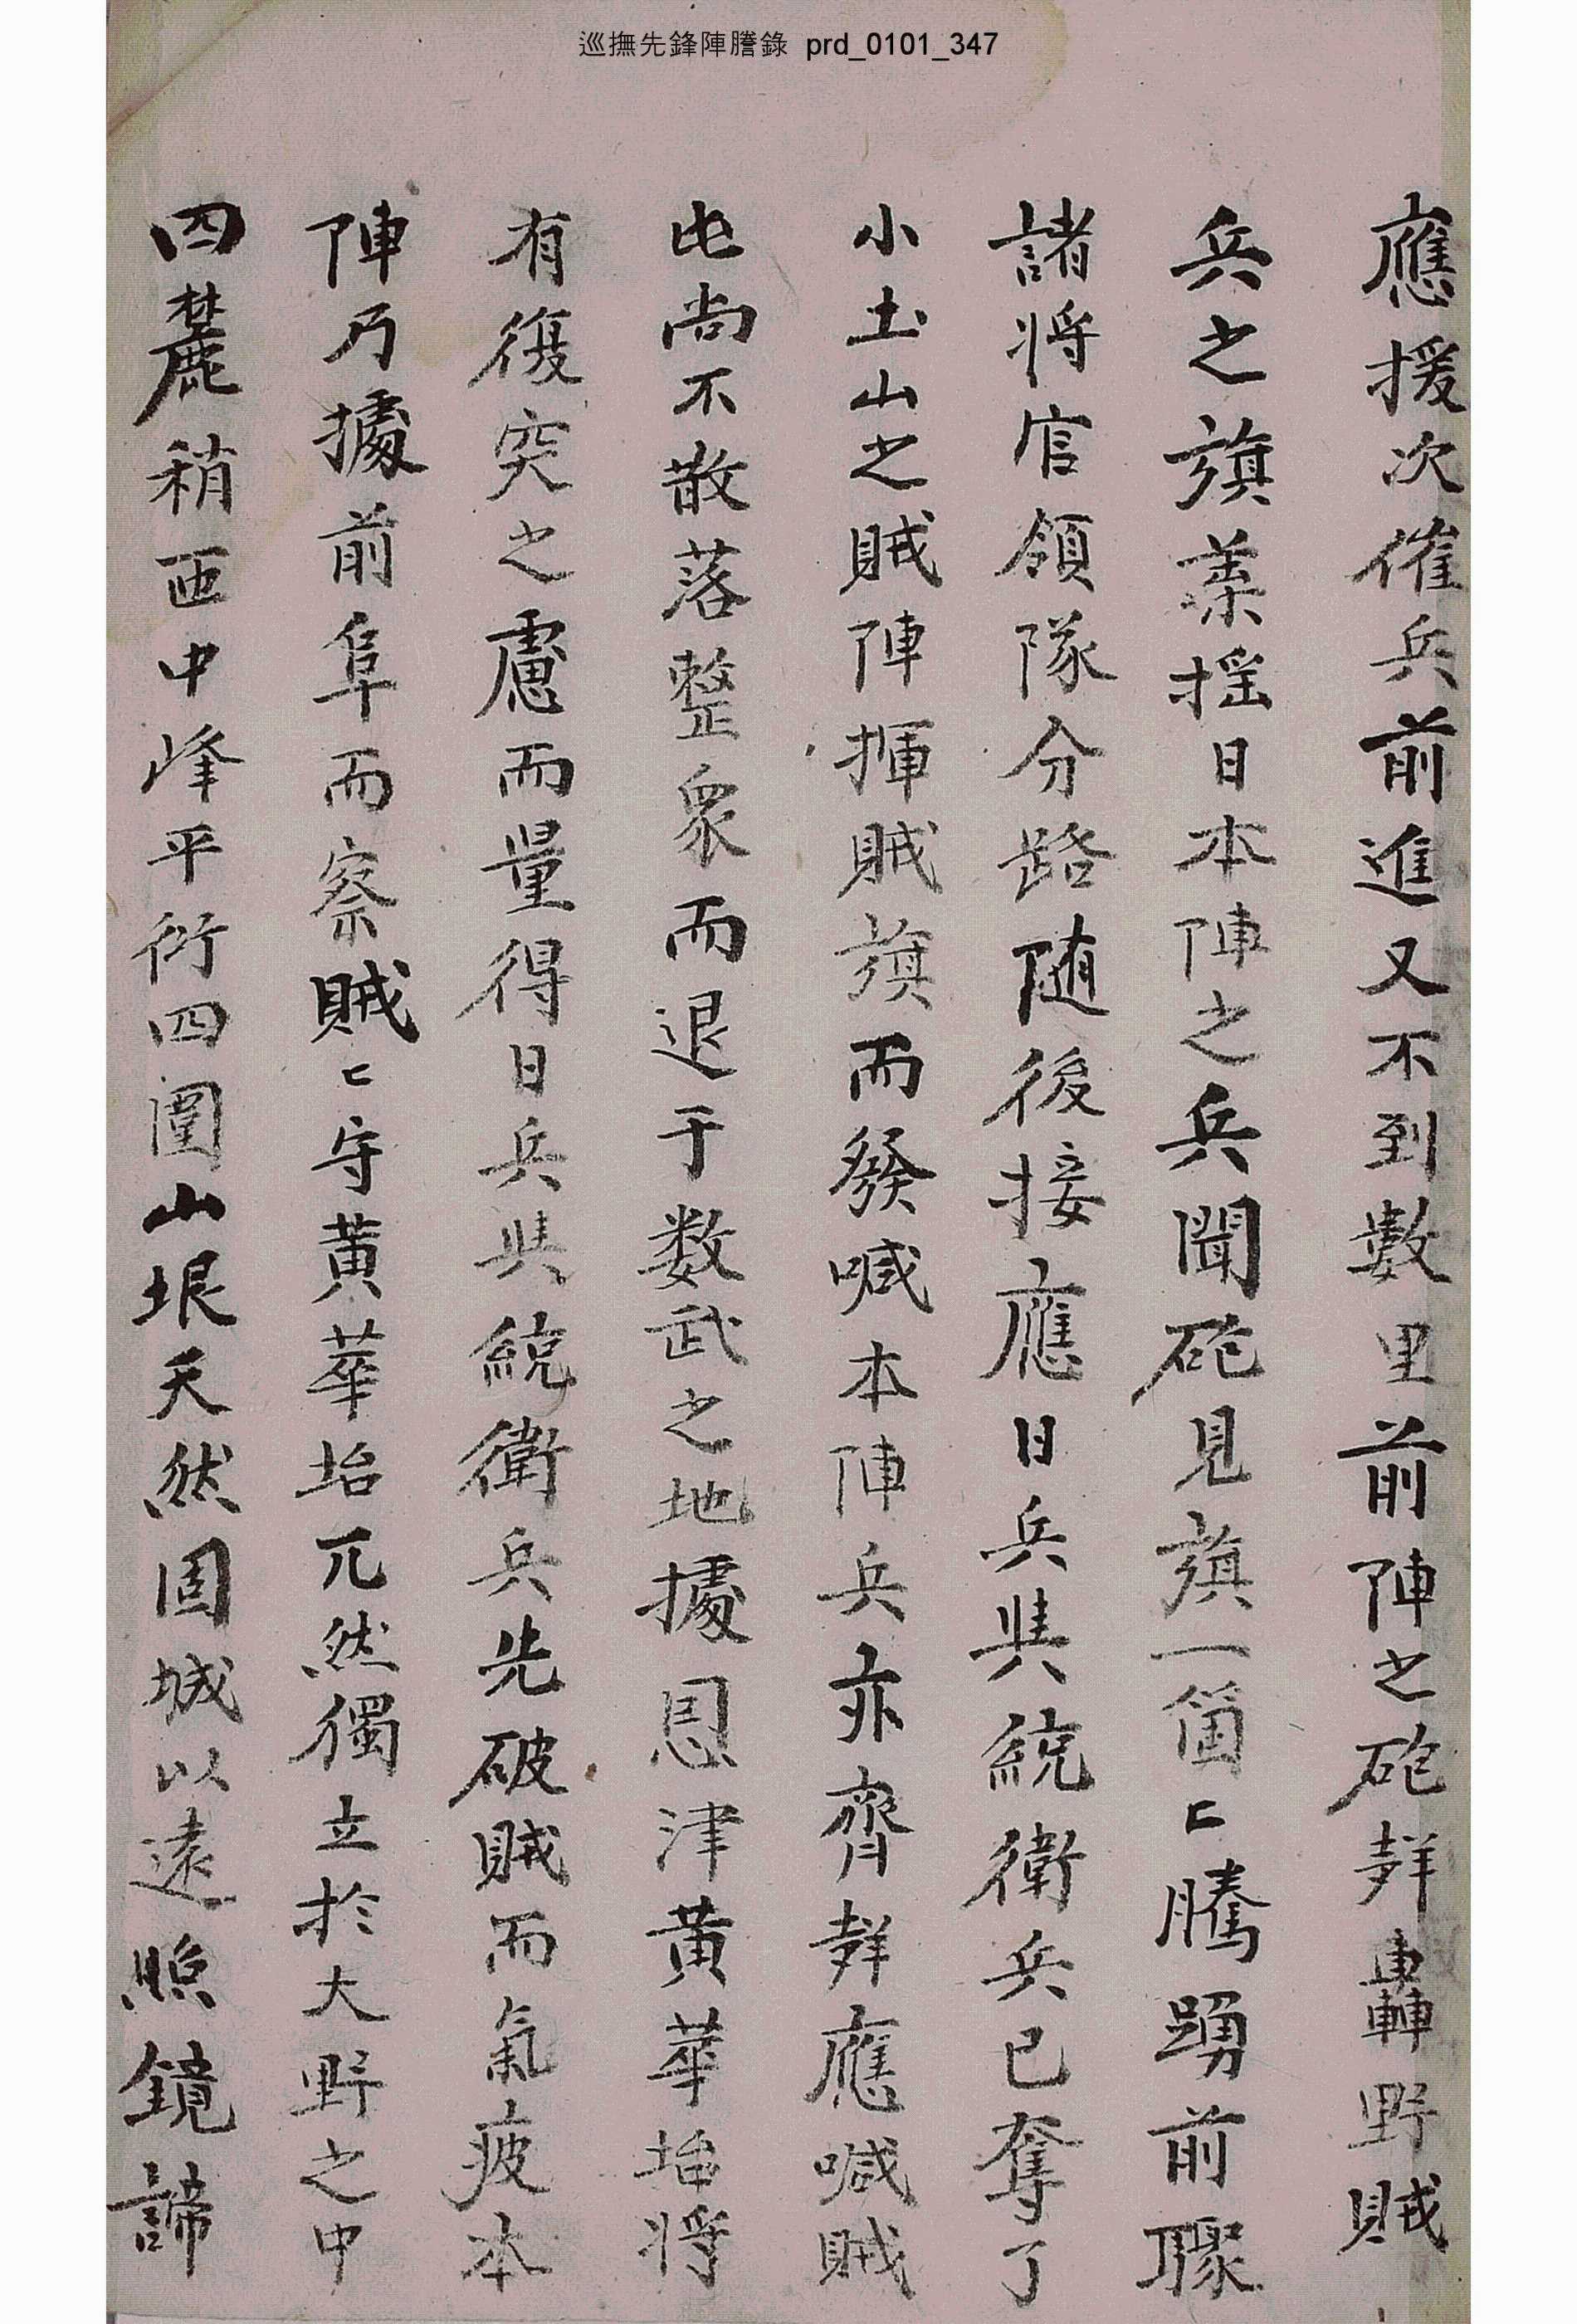 巡撫先鋒陣謄錄 prd_0101_347
應援次催兵前進又不到數里前陣之砲声轟野賊
兵之旗葉搖日本陣之兵聞砲見旗一箇〻騰踴前驟
諸将官領隊分路随後接應日兵與統衛兵已奪了
小土山之賊陣揮賊旗而發喊本陣兵亦齊声應喊賊
屯尚不散落整衆而退于数武之地據恩津黃華坮将
有復突之慮而量得日兵與統衛兵先破賊而氣疲本
陣乃據前阜而察賊〻守黃華坮兀然獨立於大野之中
四麓稍西中峰平衍四圍山垠天然固城以遠照鏡諦